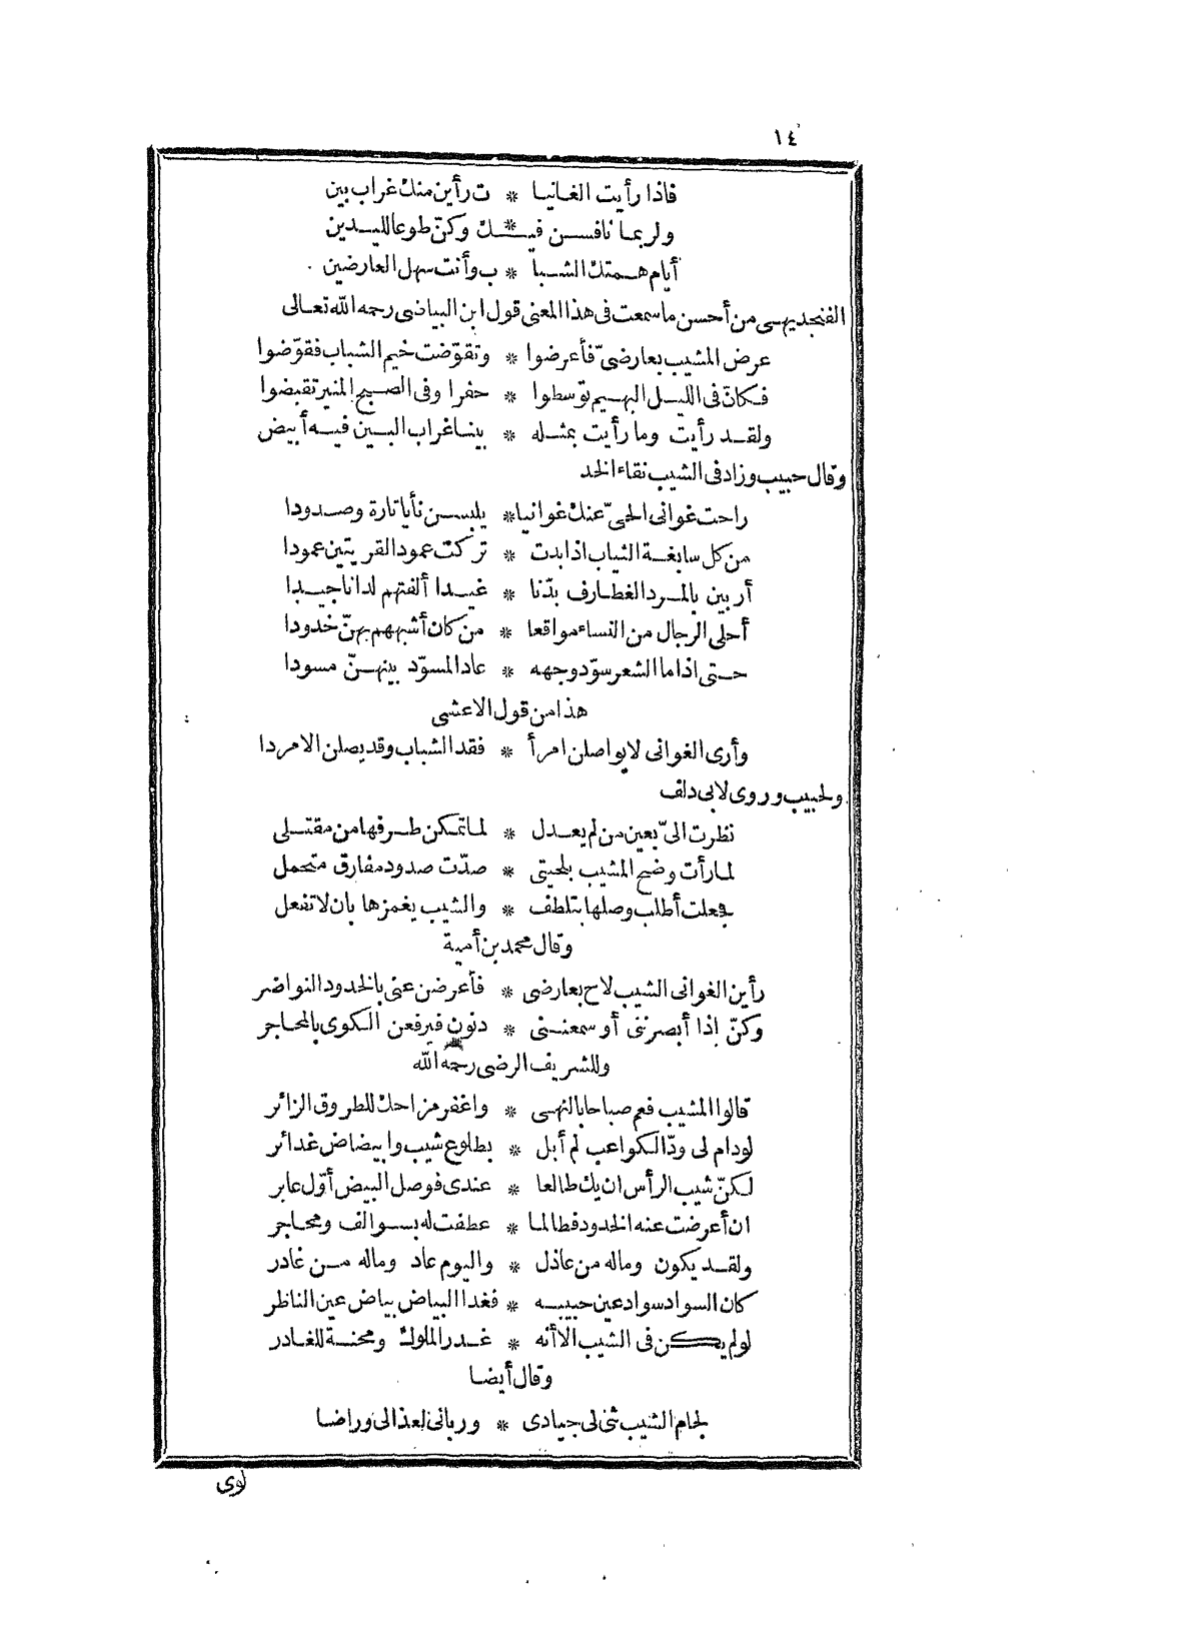 ١٤
فاذا رأيت الغانيا * ت رأين منك غراب بين
ولربما نافسن فيك * وكنّ طوعا لليدين
أيام همتك الشبا * ب وأنت سهل العارضين
الفنجديهى من أحسن ما سمعت فى هذا المعنى قول ابن البياضى رحمه الله تعالى
عرض المشيب بعارضىّ فأعرضوا * وتقوّضت خيم الشباب فقوّضوا
فكان فى الليل البهيم توّسطوا * حفرا وفى الصبح المنير تقبضوا
ولقد رأيت وما رأيت بمثله * بينا غراب البين فيه أبيض
وقال حبيب وزاد فى الشيب نقاء الخد
راحت غوانى الحىّ عنك غوانيا * يلبسن نأيا تارة وصدودا
من كل سابغة الشباب اذا بدت * تركت عمود القريتين عمودا
أربين بالمرد الغطارف بدّنا * غيدا ألفتهم لدانا جيدا
أحلى الرجال من النساء مواقعا * من كان أشبههم بهنّ خدودا
حتى اذا ما الشعر سوّد وجهه * عاد المسوّد بينهنّ مسودا
هذا من قول الاعشى
وأرى الغوانى لا يواصلن امرأ * فقد الشباب وقد يصلن الامردا
ولحبيب وروى لابى دلف
نظرت الىّ بعين من لم يعدل * لما تمكن طرفها من مقتلى
لما رأت وضح المشيب بلحيتى * صدّت صدود مفارق متحمل
فجعلت أطلب وصلها بتلطف * والشيب يغمزها بان لا تفعل
وقال محمد بن أمية
رأين الغوانى الشيب لاح بعارضى * فأعرضن عنى بالخدود النواضر
وكنّ إذا أبصرننى أو سمعننى * دنون فيرفعن الكوى بالمحاجر
وللشريف الرضى رحمه الله
قالوا المشيب فعم صباحا بالنهى * واغفر مزاحك للطروق الزائر
لو دام لى ودّ الكواعب لم أبل * بطلوع شيب وابيضاض غدائر
لكنّ شيب الرأس ان يك طالعا * عندى فوصل البيض أوّل عابر
ان أعرضت عنه الخدود فطالما * عطفت له بسوالف ومحاجر
ولقد يكون وماله من عاذل * واليوم عاد وماله من غادر
كان السواد سواد عين حبيبه * فغدا البياض بياض عين الناظر
لو لم يكن فى الشيب الا أنه * غدر الملوك ومحنة للغادر
وقال أيضا
لجام الشيب ثنى لى جيادى * وربانى لعذالى وراضا
لوى